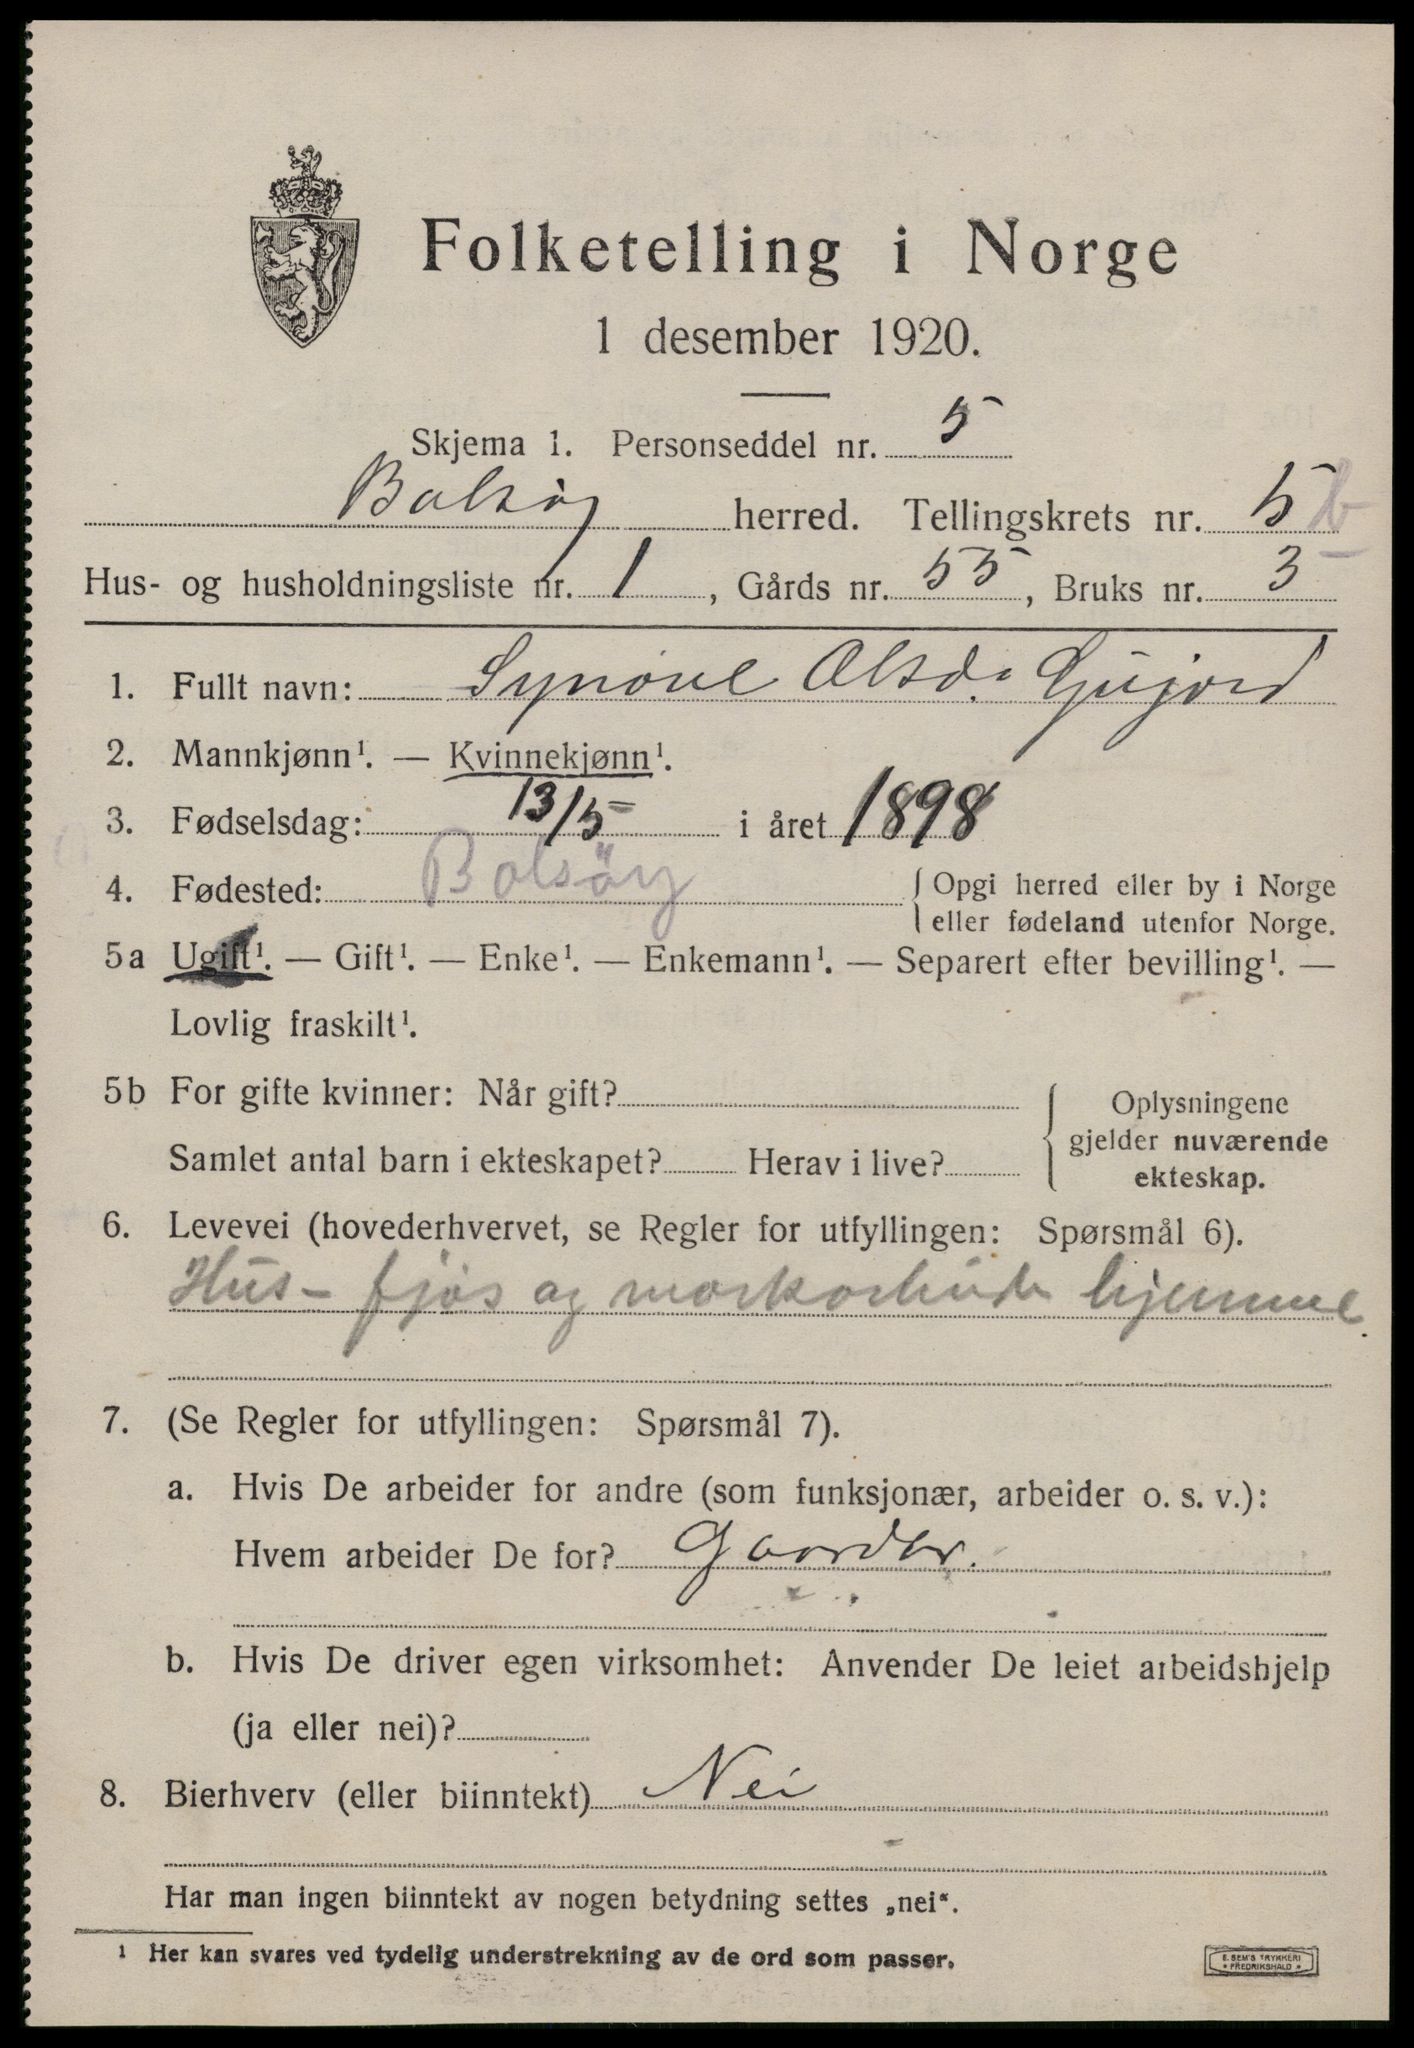 Folketelling i Norge
1 desember 1920.
Skjema 1. Personseddel nr. 5
Bolsøy herred. Tellingskrets nr. 5 b
Hus- og husholdningsliste nr. 1, Gårds nr. 55, Bruks nr. 3
1. Fullt navn: Synøve Olsd.
2. Mannkjønn¹. — Kvinnekjønn¹.
3. Fødselsdag: 13/5 i året 1898
4. Fødested: Bolsöy { Opgi herred eller by i Norge
eller fødeland utenfor Norge.
5a Ugift¹. — Gift¹. — Enke¹. — Enkemann¹. — Separert efter bevilling¹. —
Lovlig fraskilt¹.
5b For gifte kvinner: Når gift?
Samlet antal barn i ekteskapet? Herav i live?
Oplysningene
gjelder nuværende
ekteskap.
6. Levevei (hovederhvervet, se Regler for utfyllingen: Spørsmål 6).
Hus- fjøs og markarbeide hjemme
7. (Se Regler for utfyllingen: Spørsmål 7).
a. Hvis De arbeider for andre (som funksjonær, arbeider o. s. v.):
Hvem arbeider De for?
b. Hvis De driver egen virksomhet: Anvender De leiet arbeidshjelp
(ja eller nei)?
8. Bierhverv (eller biinntekt) Nei
Har man ingen biinntekt av nogen betydning settes „nei“.
¹ Her kan svares ved tydelig understrekning av de ord som passer.
E. SEM'S TRYKKERI
* FREDRIKSHALD *